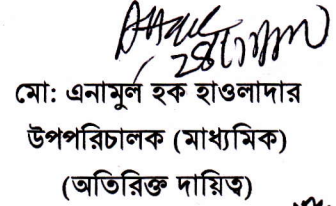 মো: এনামুল হক হাওলাদার
উপপরিচালক (মাধ্যমিক)
(অতিরিক্ত দায়িত্ব)